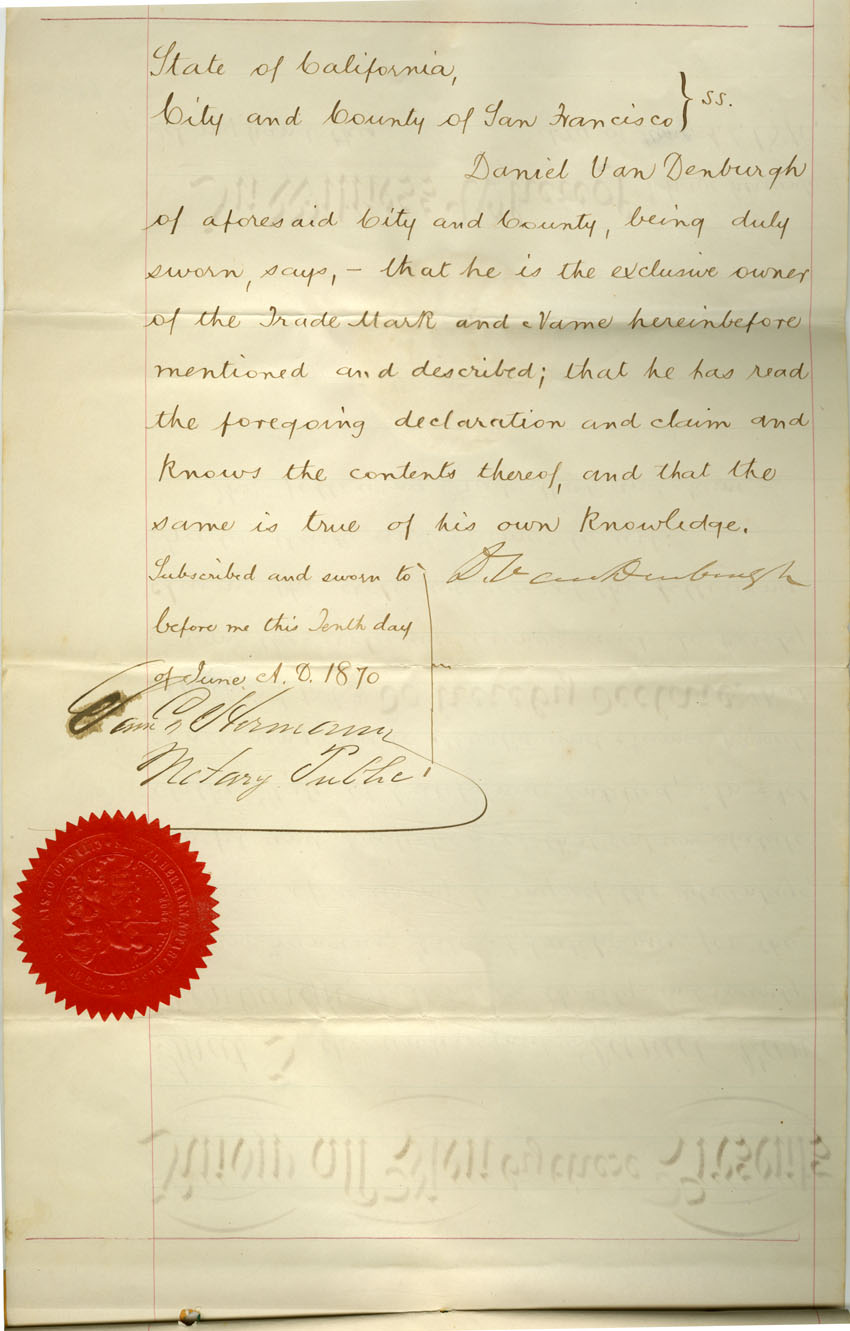 State of California,
City and County of San Francisco } ss.
Daniel Van Denburgh
of aforesaid City and County, being duly
sworn, says, – that he is the exclusive owner
of the Trade Mark and Name hereinbefore
mentioned and described; that he has read
the foregoing declaration and claim and
knows the contents thereof, and that the
same is true of his own knowledge.
Subscribed and sworn to
before me this Tenth day
of June A. D. 1870
D. Van Denburgh
Hermann
Notary Public
HERMANN, NOTARY PUBLIC